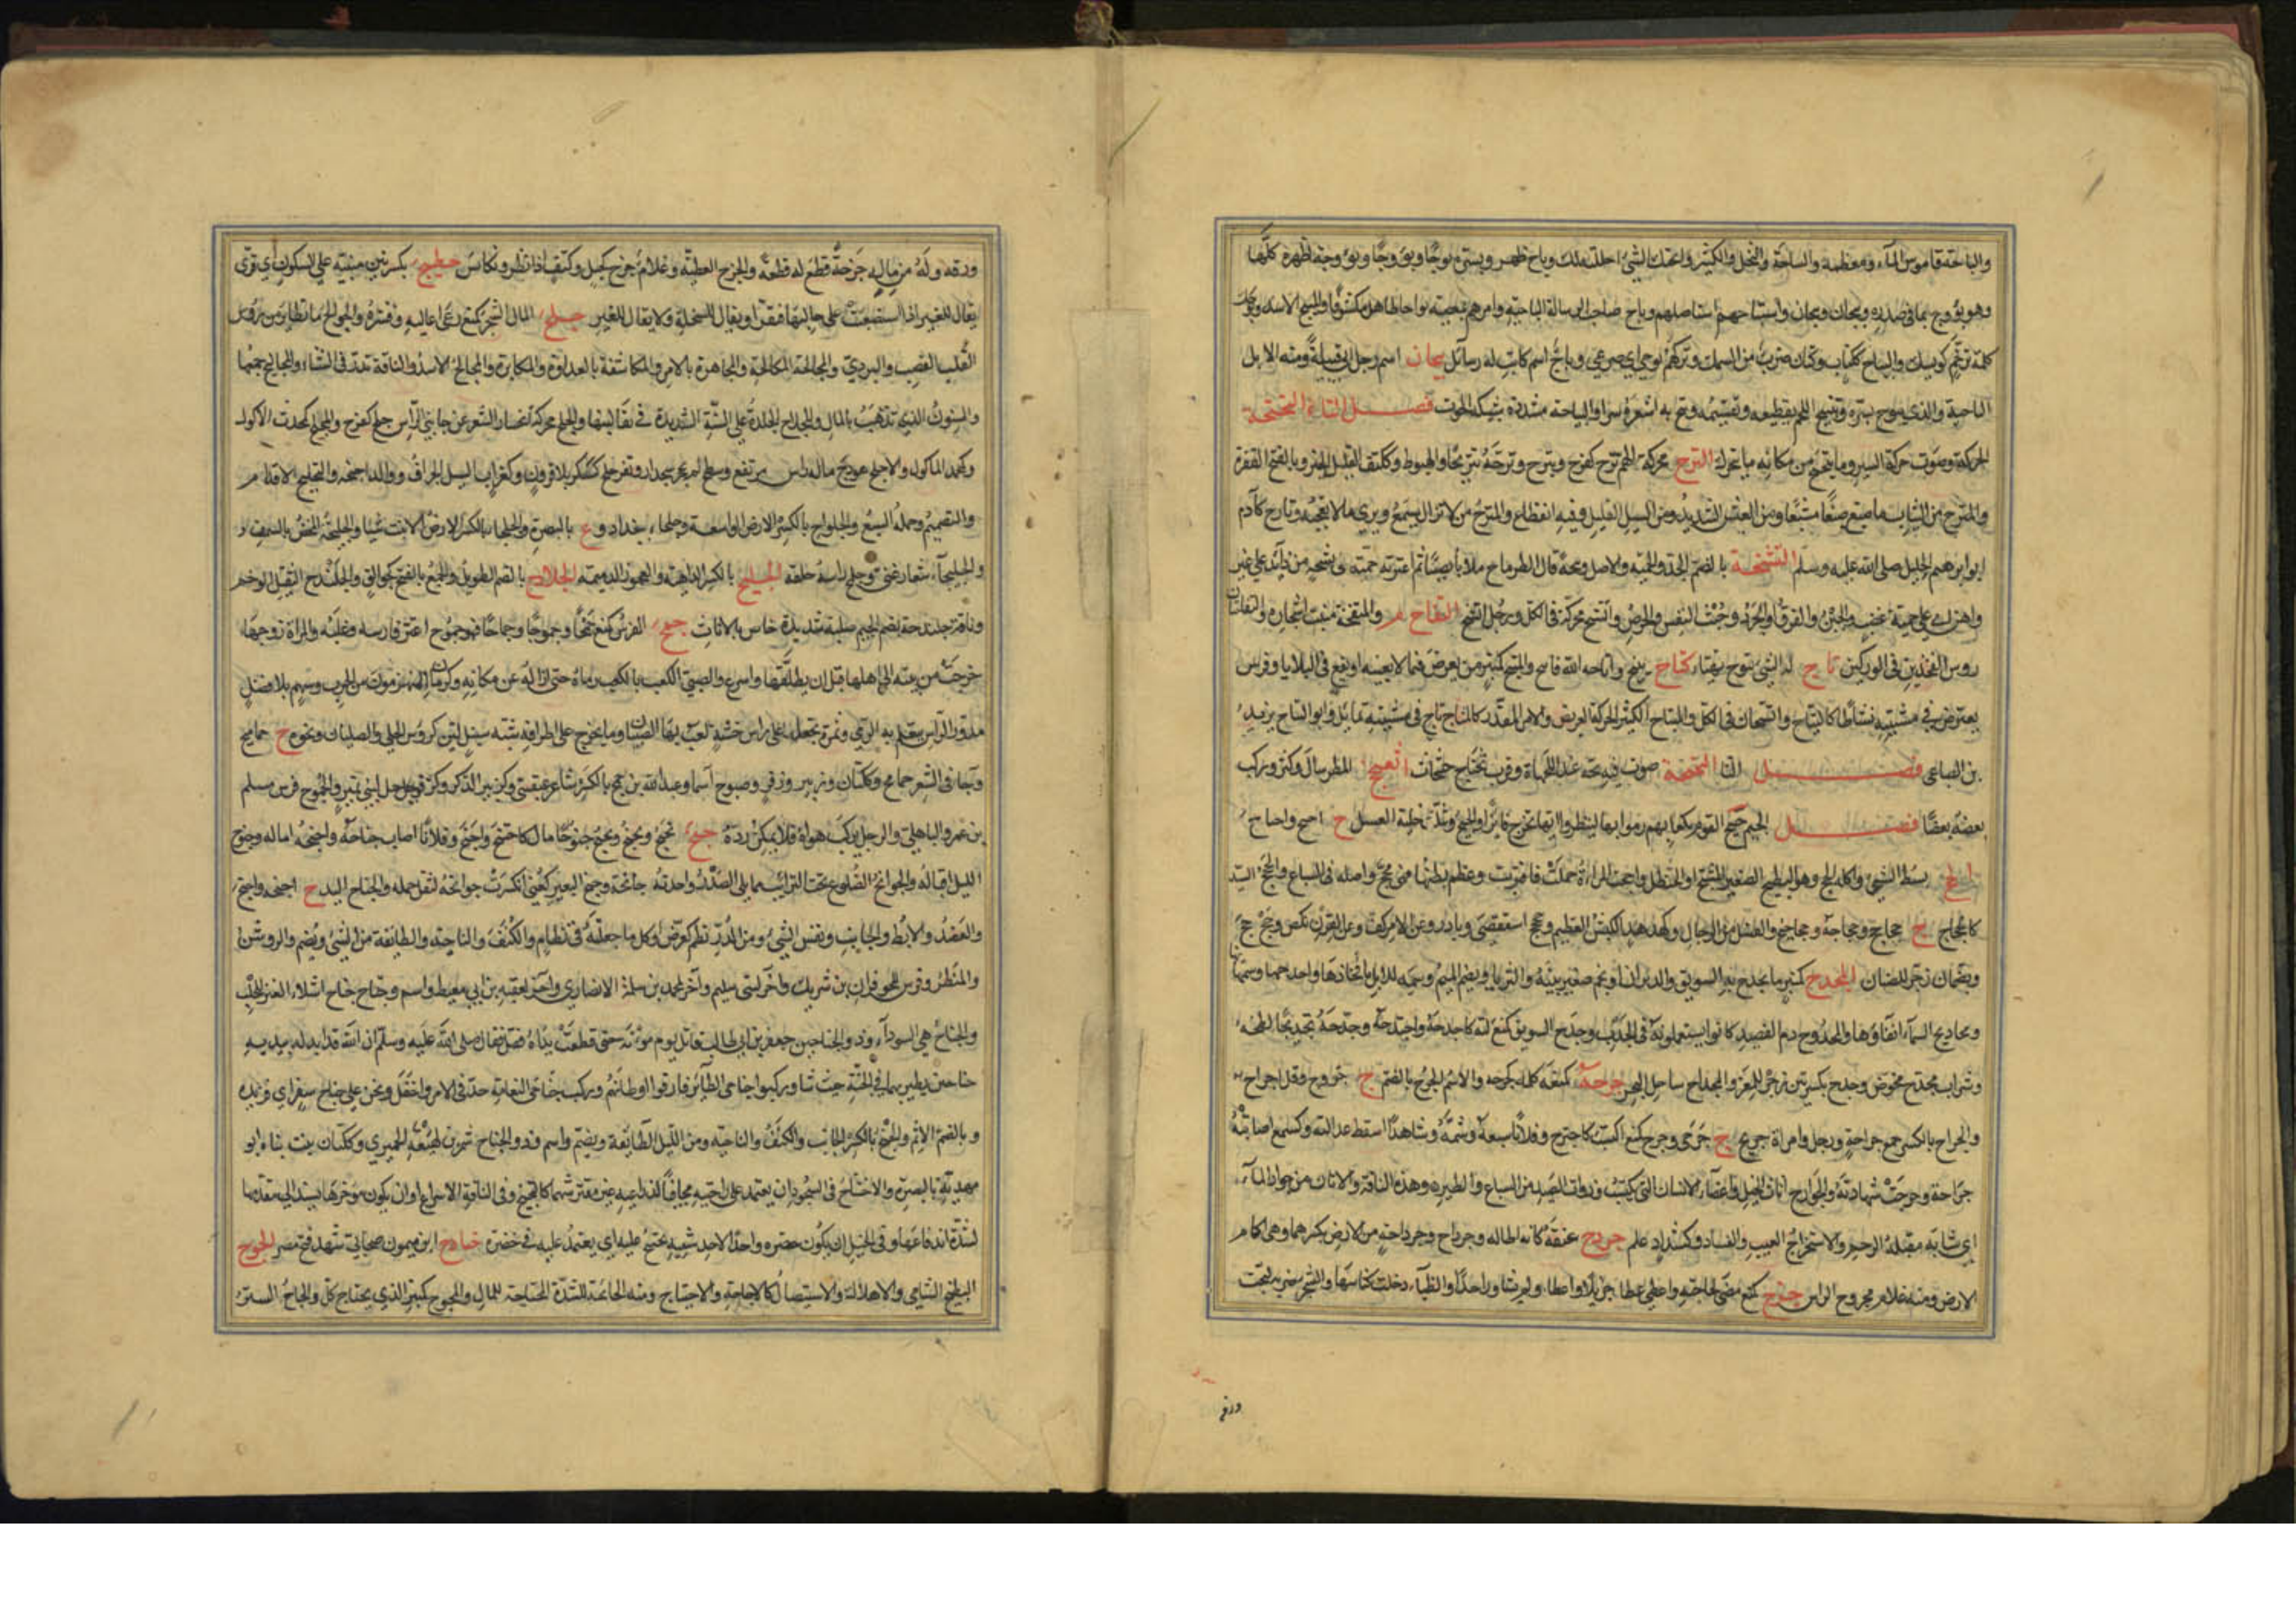 والباحة قاموس الماء ومعظمه والساحة والنخل الكثير وابحتك الشئ احللته لك وباح ظهر وبسره بوحا وبؤوحا وبؤوحة اظهره
وهو بؤوح بما في صدره وبيحان وبيحان واستباحهم استاصلهم وباح صاحب الرسالة الباحية
كلمة ترحم كويسك والبياح ككتاب وكتان ضرب من السمك وتركهم بوحى اي صرعى اسم كاتب له رسائل بيحان اسم رجل ابي قبيلة ومنه الابل
البيحانية وبيح به اشعره سرا والبياحة مشددة شبكة الحوت فصل التاء التحتحة
الحركة وصوت حركة السير وما يتتحتح من مكانه ما يتحرك الترح محركة الهم ترح كفرح وتترح وترحه تتريحا والهبوط وككتف القليل الخير وبالفتح الفقر
والمترح من الثياب ما صبغ صبغا مشبعا ومن العيش الشديد ومن السيل القليل وفيه انقطاع والمترح من لا يزال يسمع ويرى ما لا يعجبه وتارح كآدم
ابو ابرهيم الخليل صلى الله عليه وسلم التشحة بالضم الجد والحمية والاصل وشحة قال الطرماح ملا بائصا ثم اعترته حمية على تشحة من ذائد غير
واهن اي على حمية غضب والجبن والفرق او الحرد وخبث النفس والحرص التفاح م والمتفحة منبت اشجاره والتفاحتان
روس الفخذين في الوركين تاح له الشئ يتوح تهيا كتاح يتيح واتاحه الله فاتيح والمتيح كمنبر من يعرض فيما لا يعنيه او يقع في البلايا وفرس
يعترض في مشيته نشاطا كالتياح والتيحان في الكل والمتياح الكثير الحركة العريض والامر المقدر كالمتاح تاح في مشيته تمايل وابو التياح يزيد
بن الضبعي فصل الثا الثحثحة صوت فيه بحة عند اللهاة وقرب ثحثاح حثحاث اثعنجح المطر سال وكثر وركب
بعضه بعضا فصل الجيم جبح القوم بكعابهم رموا بها لينظروا ايها تخرج فائزا والجبح ويثلث خلية العسل ج اجبح واجباح
الجح بسط الشئ واكل الجح وهو البطيخ الصغير المشنج او الحنظل واجحت المراة حملت فاقربت وعظم بطنها فهي مجح واصله في السباع والجحجح السيد
كالجحجاح ج جحاجح وجحاجحة وجحاجيح والفسل من الرجال وكهدهد الكبش العظيم وجحجح استقصى وبادر وعن الامر كف وعن القرن نكص وجح جح
ويضمان زجر للضان المجدح كمنبر ما يجدح به السويق والدبران او نجم صغير بينه والثريا ويضم الميم وسمة للابل بافخاذها واجدحها وسمها بها
ومجاديح السماء انواؤها والمجدوح دم الفصيد كانوا يستعملونه في الجدب وجدح السويق كمنع لته كاجدحه واجتدحه وجدحه تجديحا لطخه
وشراب مجدح مخوض وجدح بكسرتين زجر للمعز والمجداح ساحل البحر جرحه كمنعه كلمه كجرحه والاسم الجرح بالضم ج جروح وقل اجراح
والجراح بالكسر جمع جراحة ورجل وامراة جريح ج جرحى وجرح كمنع اكتسب كاجترح وفلانا سبه وشتمه وشاهدا اسقط عدالته وكسمع اصابته
جراحة وجرحت شهادته والجوارح اناث الخيل واعضاء الانسان التي تكتسب وذوات الصيد من السباع والطير وهذه الناقة والاتان من جوارح المال
اي شابة مقبلة الرحم والاستجراح العيب والفساد وكشداد علم جردح عنقه كانه اطاله وجرداح وجرداحة من الارض بكسرهما وهي اكام
الارض ومنه غلام مجردح الراس جزح كمنع مضى لحاجته واعطى عطاء جزيلا او اعطى ولم يشاور احدا والظباء دخلت كناسها والشجر ضربه ليحت
ورقه
ورقه وله من ماله جزحة قطع له قطعة والجزح العطية وغلام جزح كجبل وكتف اذا نظر وتكايس جطح بكسرتين مبنية على السكون اي قرى
يقال للعنز اذا استصعبت على حالبها فتقر او يقال للسخلة ولا يقال للعنز جلح المال الشجر كمنع رعى اعاليه وقشره والجوالح ما تطاير من رؤس
القصب والبردي والمجالحة المكالحة والمجاهرة بالامر والمكاشفة بالعداوة والمكابرة والمجالح الاسد والناقة تدر في الشتاء والمجاليح جمعها
والسنون التي تذهب بالمال والمجلاح الجلدة على السنة الشديدة في بقاء لبنها والجلح محركة انحسار الشعر عن جانبي الراس جلح كفرح والمجلح كمحدث الاكول
وكمحمد الماكول والاجلح هودج ماله راس مرتفع وسطح لم يحجر بجدار وبقر جلح كسكر بلا قرون وكغراب السيل الجراف ووالد احيحة والتجليح الاقدام
والتصميم وحملة السبع والجلواح بالكسر الارض الواسعة وجلحاء ة ببغداد وع بالبصرة والجلحاء بالكسر الارض لا تنبت شيئا والجليحة المخض بالسمن
والجليحاء شعار غني وجلمح راسه حلقه الجلبح بالكسر الداهية والعجوز الدميمة الجلادح بالضم الطويل والجمع بالفتح كجوالق والجلندح الثقيل الوخم
وناقة جلندحة بضم الجيم صلبة شديدة خاص بالاناث جمح الفرس كمنع جمحا وجموحا وجماحا وهو جموح اعتز فارسه وغلبه والمراة زوجها
خرجت من بيته الى اهلها قبل ان يطلقها واسرع والصبي الكعب بالكعب رماه حتى ازاله عن مكانه وكرمان المنهزمون من الحرب وسهم بلا نصل
مدور الراس يتعلم به الرمي وتمرة تجعل على راس خشبة يلعب بها الصبيان وما يخرج على اطرافه شبه سنبل لين كرؤس الحلي والصليان ونحوه ج جماميح
وجاء في الشعر جمامح وككتان وزبير وزفر وصبوح اسما وعبدالله بن جمح بالكسر شاعر عبقسي وكزبير الذكر وكزفر جبل لبني نمير والجموح فرس مسلم
بن عمرو الباهلي والرجل يركب هواه فلا يمكن رده جنح يجنح ويجنح ويجنح جنوحا مال كاجتنح واجنح وفلانا اصاب جناحه واجنحه اماله وجنوح
الليل اقباله والجوانح الضلوع تحت الترائب مما يلي الصدر واحدته جانحة وجنح البعير كعني انكسرت جوانحه لثقل حمله والجناح اليد ج اجنحة واجنح
والعضد والابط والجانب ونفس الشئ ومن الدر نظم يعرض او كل ما جعلته في نظام والكنف والناحية والطائفة من الشئ ويضم والروشن
والمنظر وفرس للحوفزان بن شريك واخر لبني سليم وآخر لمحمد بن مسلمة الانصاري وآخر لعقبة بن ابي معيط واسم وجناح جناح اشلاء العنز للحلب
والجناح هي السوداء وذو الجناحين جعفر بن ابي طالب قاتل يوم مؤتة حتى قطعت يداه فقتل فقال صلى الله عليه وسلم ان الله قد ابدله بيديه
جناحين يطير بهما في الجنة حيث شاء وركبوا جناحي الطائر فارقوا اوطانهم وركب جناحي النعامة جد في الامر واحتفل ونحن على جناح سفر اي نريده
وبالضم الاثم والجنح بالكسر الجانب والكنف والناحية ومن الليل الطائفة ويضم واسم وذو الجناح شمر بن لهيعة الحميري وككتان بيت بناه ابو
مهدية بالبصرة والاجتناح في السجود ان يعتمد على راحتيه مجافيا لذراعيه غير مفترشهما كالتجنح وفي الناقة الاسراع او ان يكون مؤخرها يسند الى مقدمها
لشدة اندفاعها وفي الخيل ان يكون حضره واحدا لاحد شقيه يجتنح عليه اي يعتمد عليه في حضره جنادح ابن ميمون صحابي شهد فتح مصر الجوح
البطيخ الشامي والاهلاك والاستيصال كالاجاحة والاجتياح ومنه الجائحة للشدة المجتاحة للمال والمجوح كمنبر الذي يجتاح كل والجاح الستر